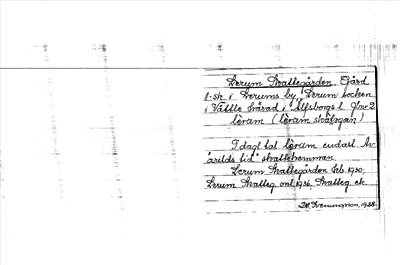 Lerum Skattegården Gård
i Lerums by, Lerum socken
i Vättle härad i Älfsborgs l.
lèram (lèram skàtägan)
I dagl. tal lèram endast. Av
ärilds tid skattehemman
Lerum Skattegården Feb. 1930.
Lerum Skatteg. 1936. Skatteg.
1938.